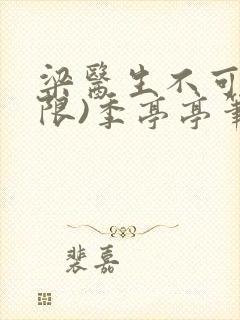 梁醫生不可
限)季亭亭筆
裴嘉